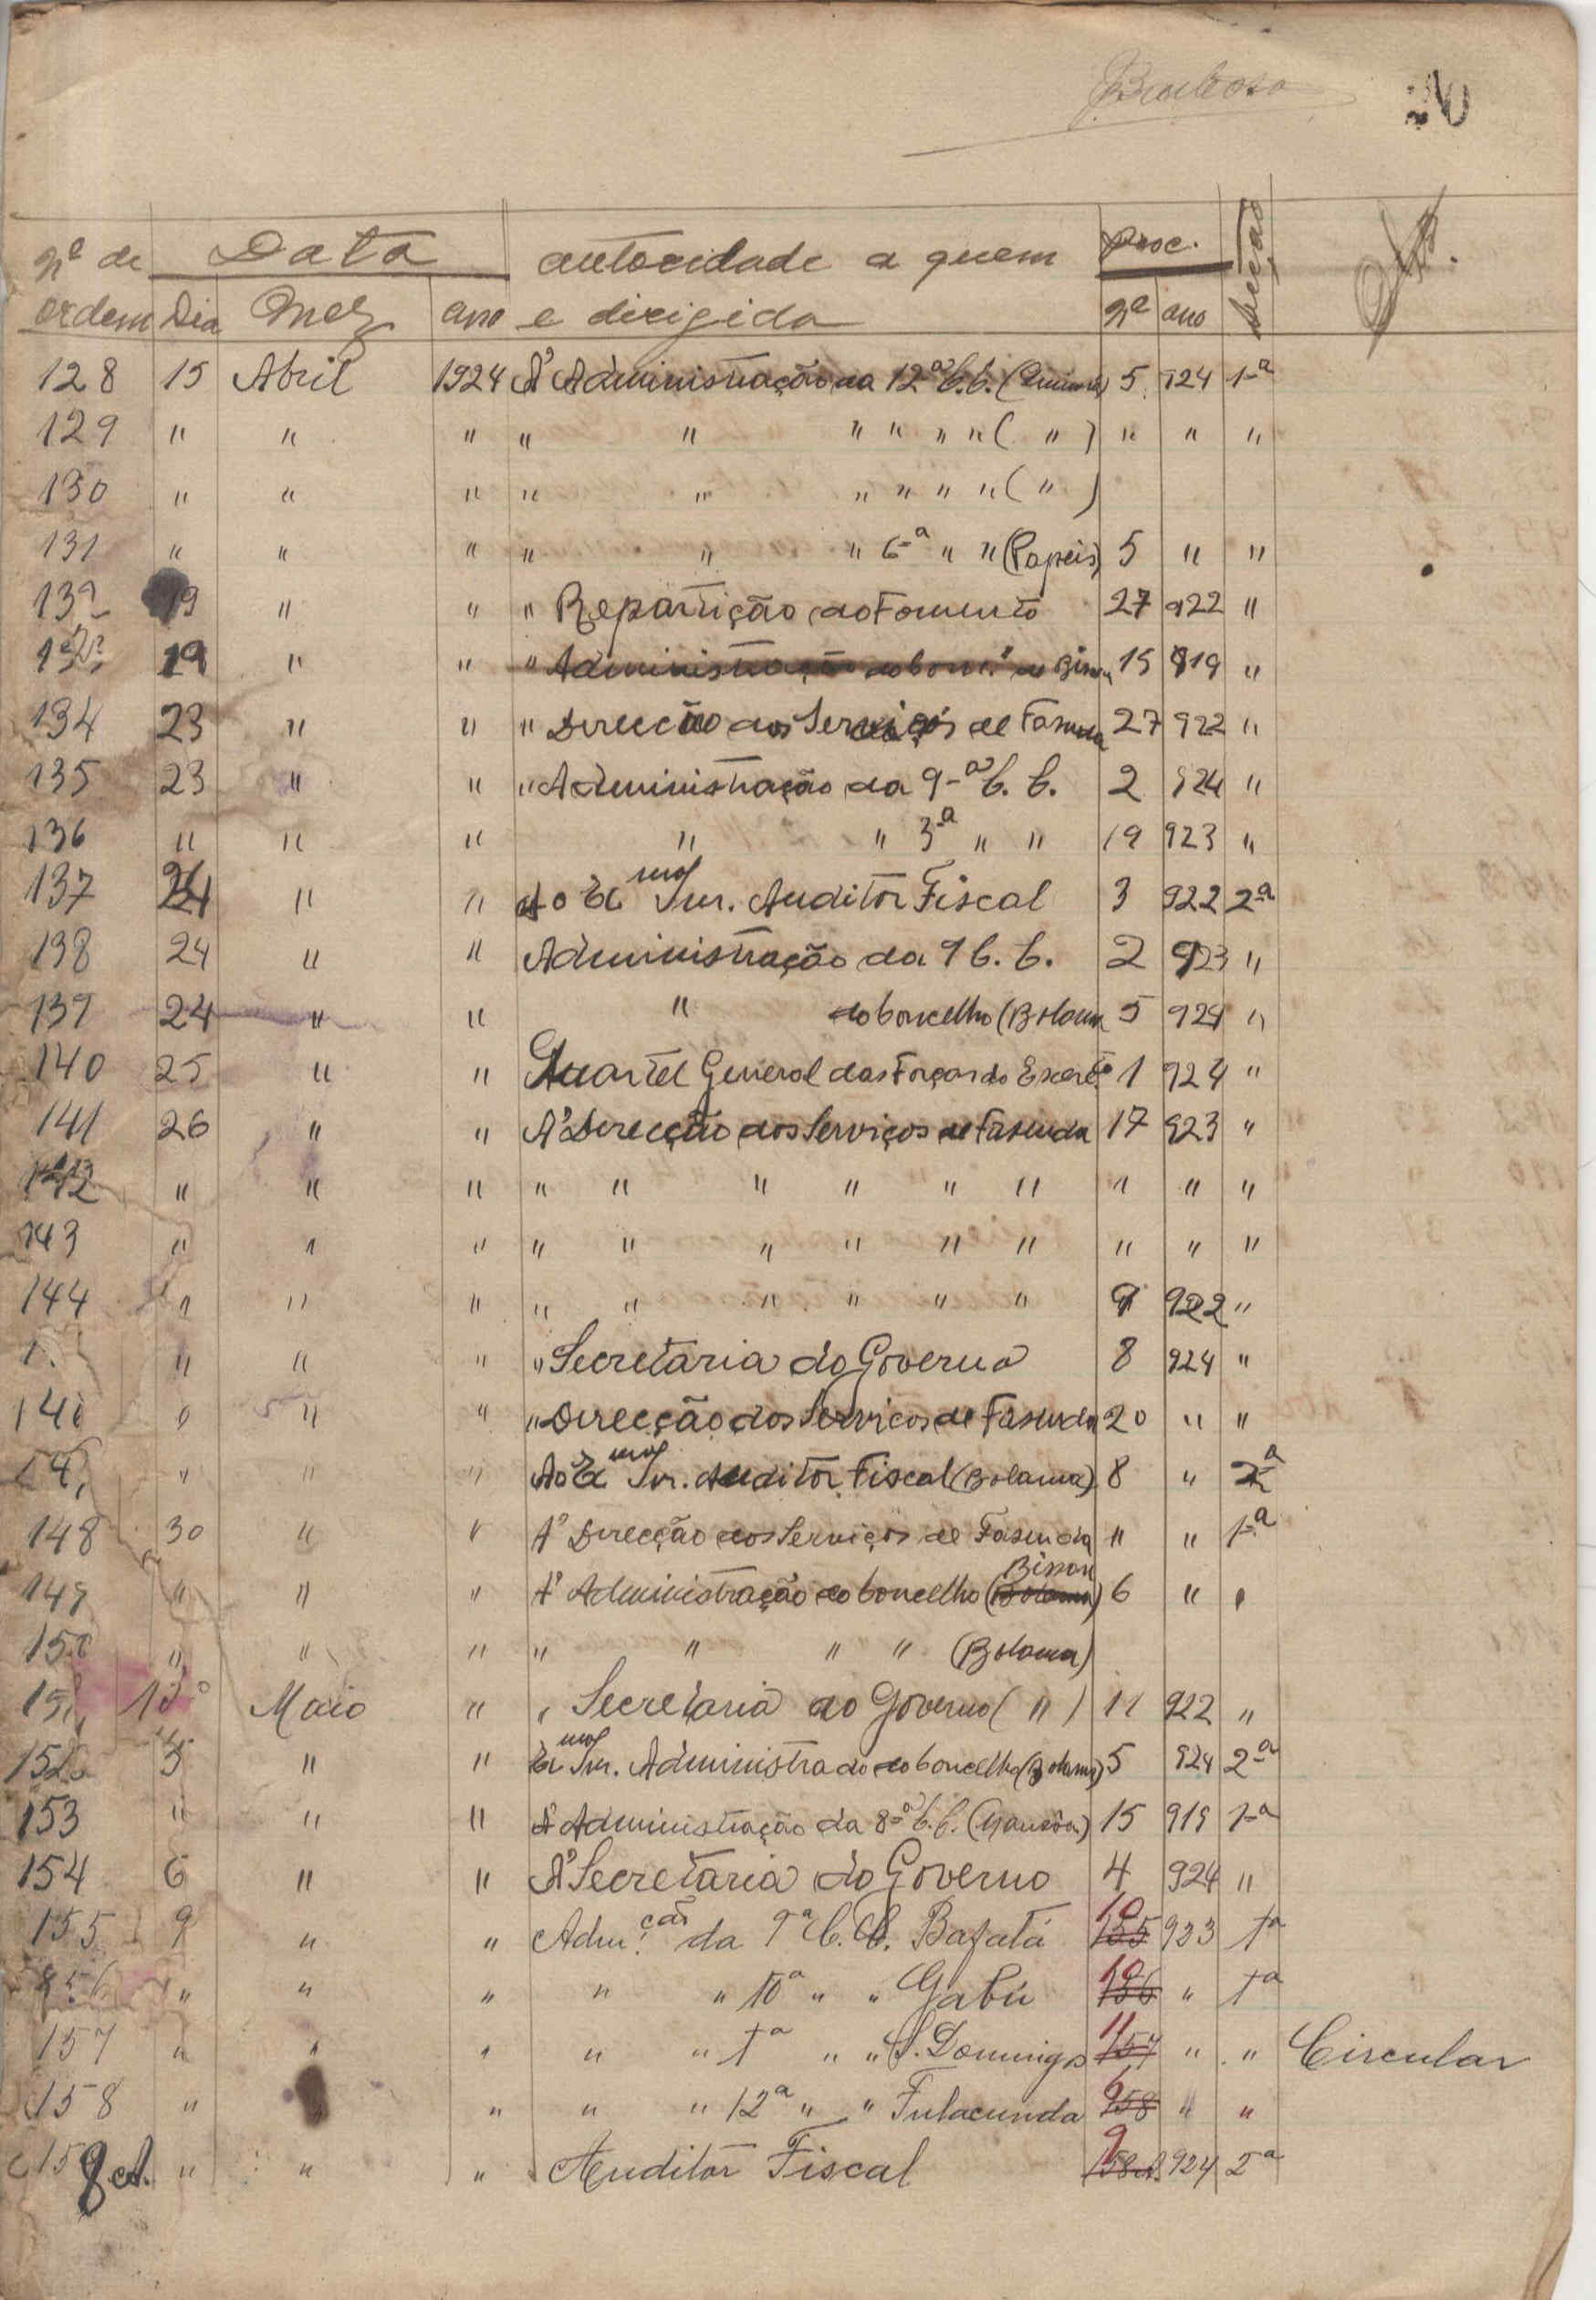 Barbosa
20
nº de Data autoridade a quem Proc. Secção Obs.
ordem Dia Mez ano e dirigida nº ano
128 15 Abril 1924 Á Administração da 12ª C.C. 5 924 1ª
129 " " " " " " " " " ( " ) " " "
130 " " " " " " " " " ( " )
131 " " " " " " 6ª " " (Papeis) 5 " "
132 19 " " " Repartição do Fomento 27 922 "
133 19 " " " Administração do Conc.º de Bissau 15 919 "
134 23 " " " Direcção dos Serviços de Fasenda 27 922 "
135 23 " " " Administração da 9ª C. C. 2 924 "
136 " " " " " 3ª " " 19 923 "
137 24 " " Ao Exmo Snr. Auditor Fiscal 3 922 2ª
138 24 " " Administração da 9 C. C. 2 923 "
139 24 " " " do Concelho (Bolama 5 924 "
140 25 " " Quartel General das Forças do Exercto 1 924 "
141 26 " " Á Direcção dos Serviços de Fasenda 17 923 "
142 " " " " " " " " " " " "
143 " " " " " " " " " " " "
144 " " " " " " " " " 9 922 "
" " " " Secretaria do Governo 8 924 "
146 " " " " Direcção dos Serviços de Fasenda 20 " "
" " " Ao Exmo Snr. Auditor Fiscal (Bolama) 8 " 2ª
148 30 " " Á Direcção dos Serviços de Fasenda " " 1ª
149 " " " Á Administração do Concelho (Bolama) Bissau 6 " "
150 " " " " " " " (Bolama)
151 Maio " " Secretaria do Governo ( " ) 11 922 "
152 5 " " Exmo Snr. Administrado do Concelho (Bolama) 5 924 2ª
153 " " " Á Administração da 8ª C.C. (Mansôa) 15 919 1ª
154 6 " " Á Secretaria do Governo 4 924 "
155 9 " " Adm.ção da 9ª C. C. Bafatá 155 10 923 1ª
156 " " " " " 10ª " " Gabú 156 10 " 1ª
157 " " " " " 1ª " " S. Domingos 157 11 " " Circular
158 " " " " " 12ª " " Fulacunda 158 6 " "
158 A. " " " Auditor Fiscal 158 A. 9 924 2ª